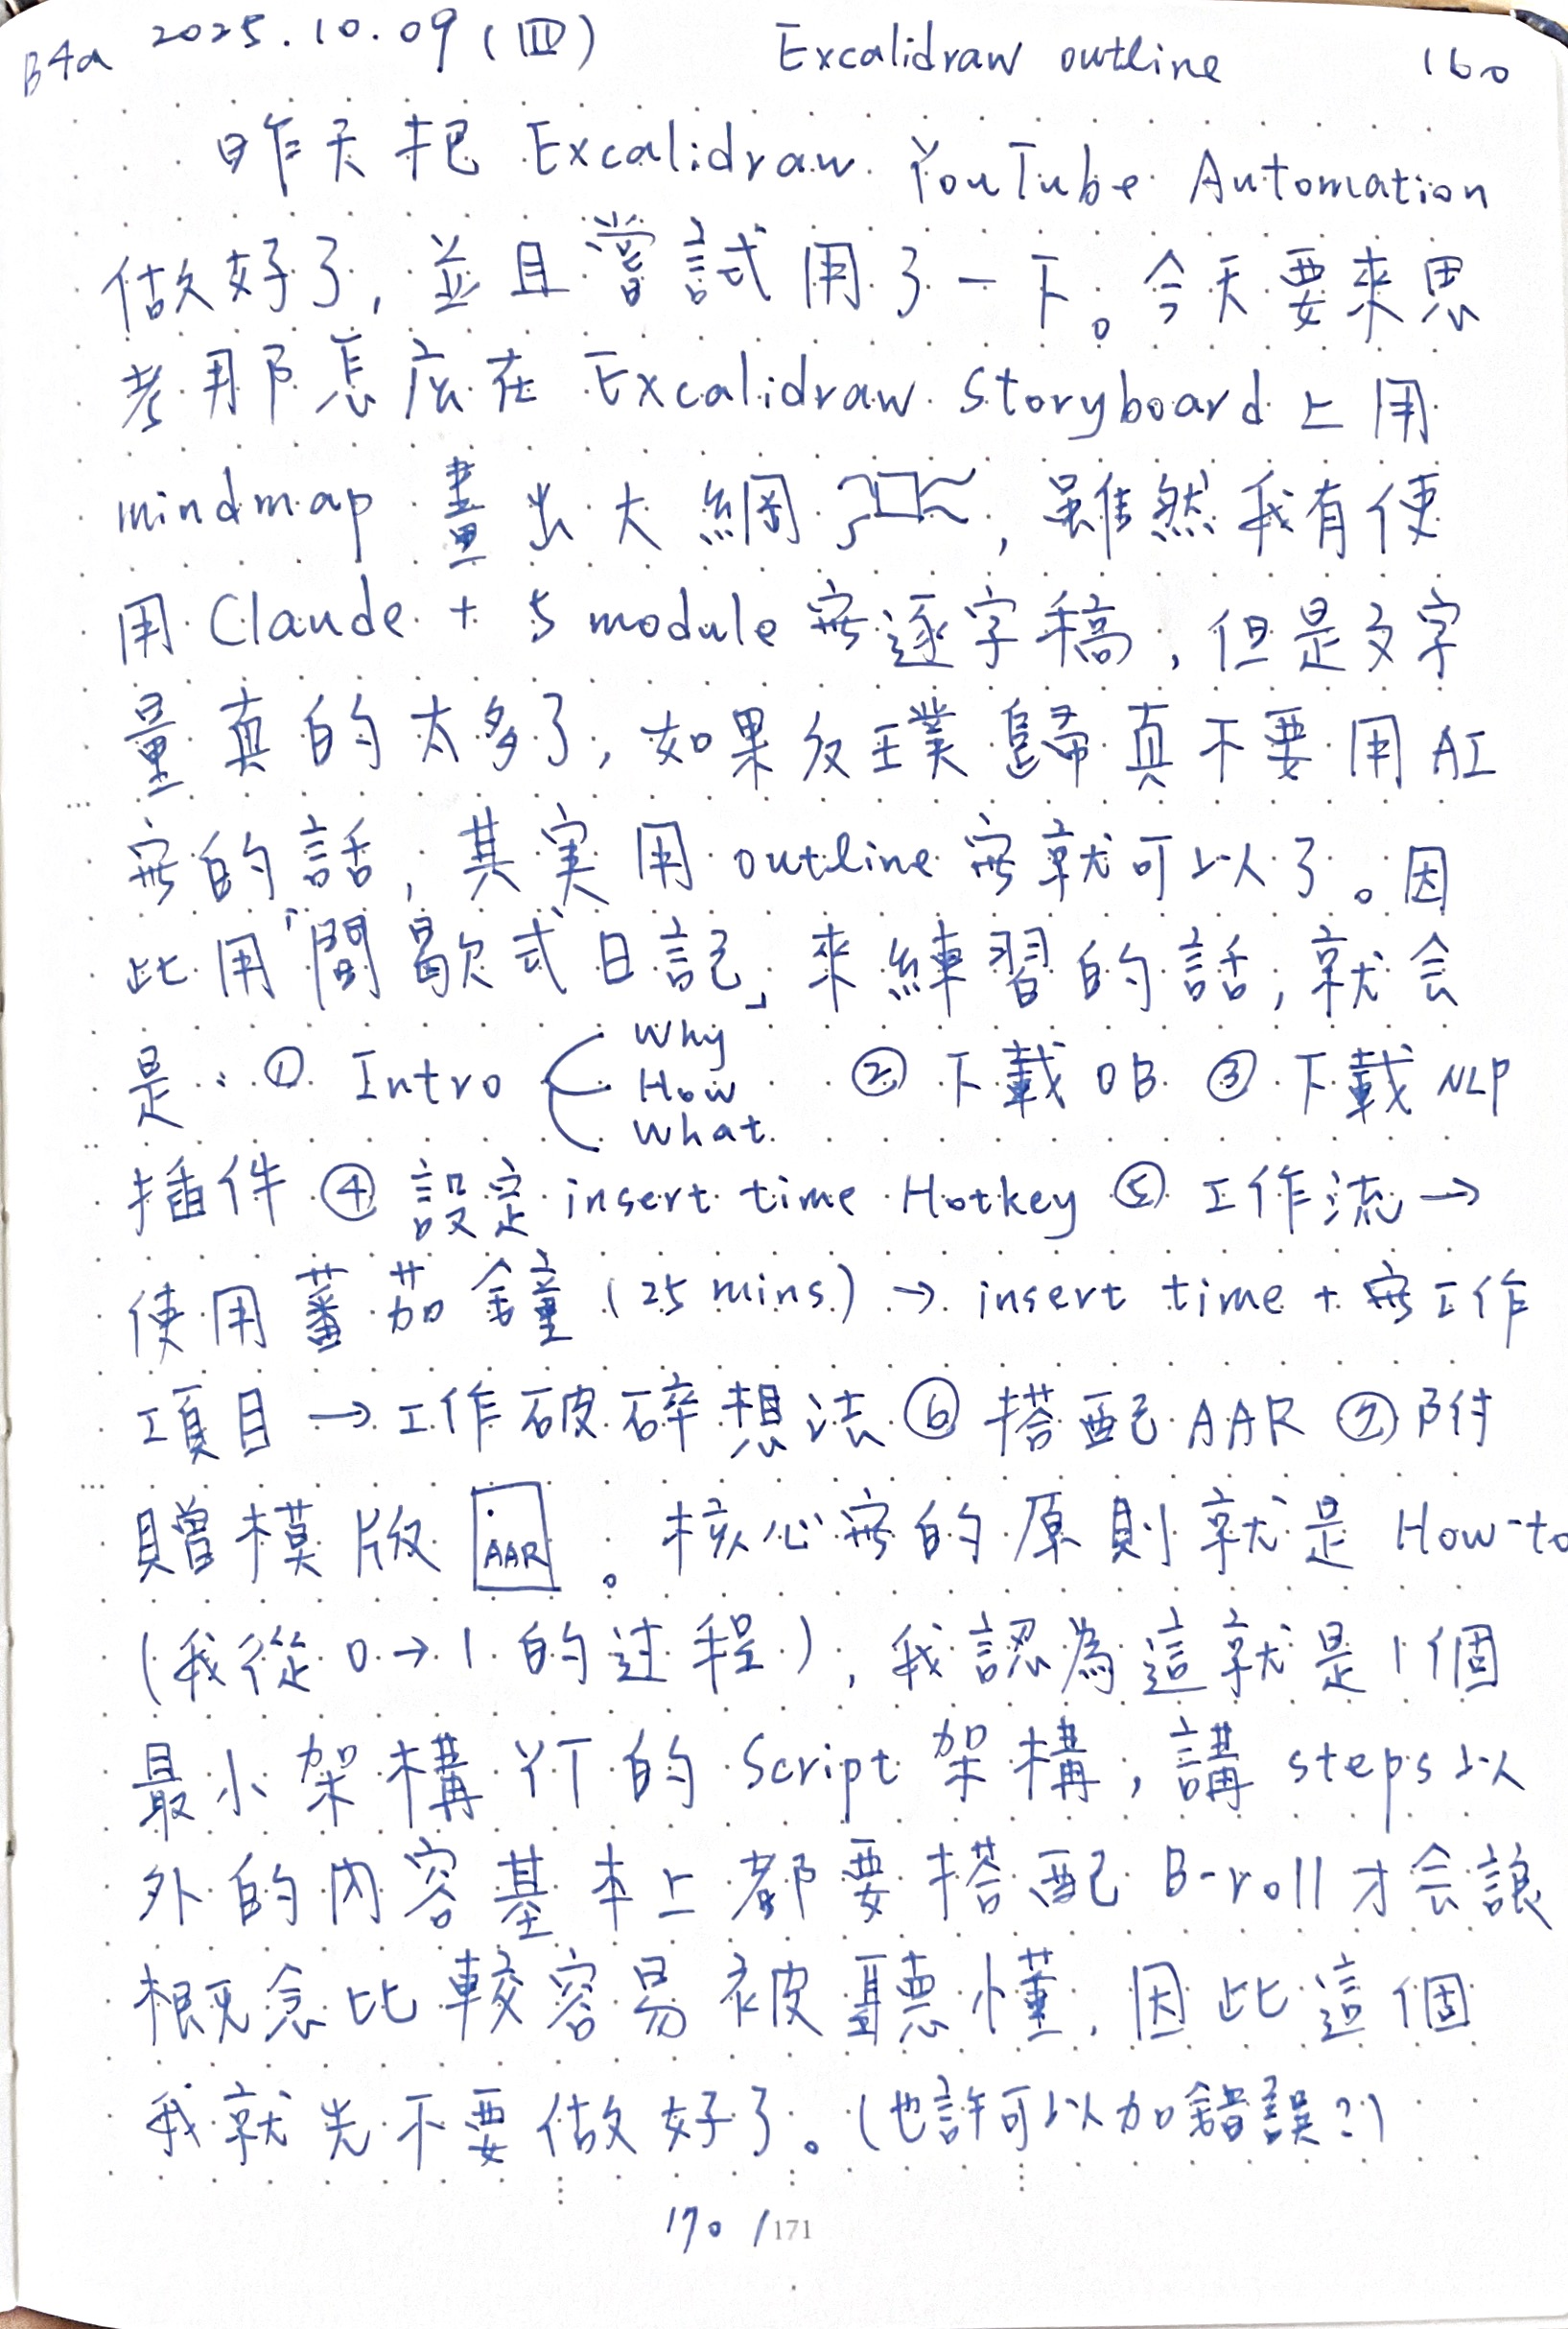 B4a 2025.10.09(四) Excalidraw outline 160
昨天把 Excalidraw YouTube Automation
做好了, 並且嘗試用了一下。今天要來思
考用那怎麼在 Excalidraw Storyboard 上用
mindmap 畫出大綱, 雖然我有使
用 Claude + 5 module 寫逐字稿, 但是文字
量真的太多了, 如果反璞歸真不要用 AI
寫的話, 其实用 outline 寫就可以了。因
此用「間歇式日記」來練習的話, 就会
是: ① Intro Why How What ② 下載 OB ③ 下載 NLP
插件 ④ 設定 insert time Hotkey ⑤ 工作流 →
使用蕃茄鐘 (25 mins) → insert time + 寫工作
項目 → 工作破碎想法 ⑥ 搭配 AAR ⑦ 附
贈模版 AAR 。核心寫的原則就是 How-to
(我從 0 → 1 的过程), 我認為這就是 1 個
最小架構 YT 的 Script 架構, 講 steps 以
外的內容基本上都要搭配 B-roll 才会讓
概念比較容易被聽懂, 因此這個
我就先不要做好了。(也許可以加錯誤?)
170 / 171